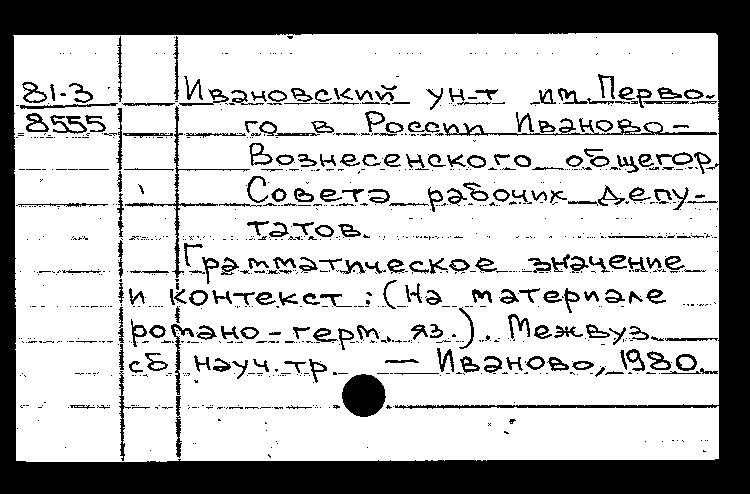 81-3 Ивановский ун-т им. Перво-
8555 го в России Иваново-
Вознесенского общегор.
Совета рабочих депу-
татов.
Грамматическое значение
и контекст : (На материале
романо-герм. яз.). Межвуз.
сб науч. тр. — Иваново, 1980.